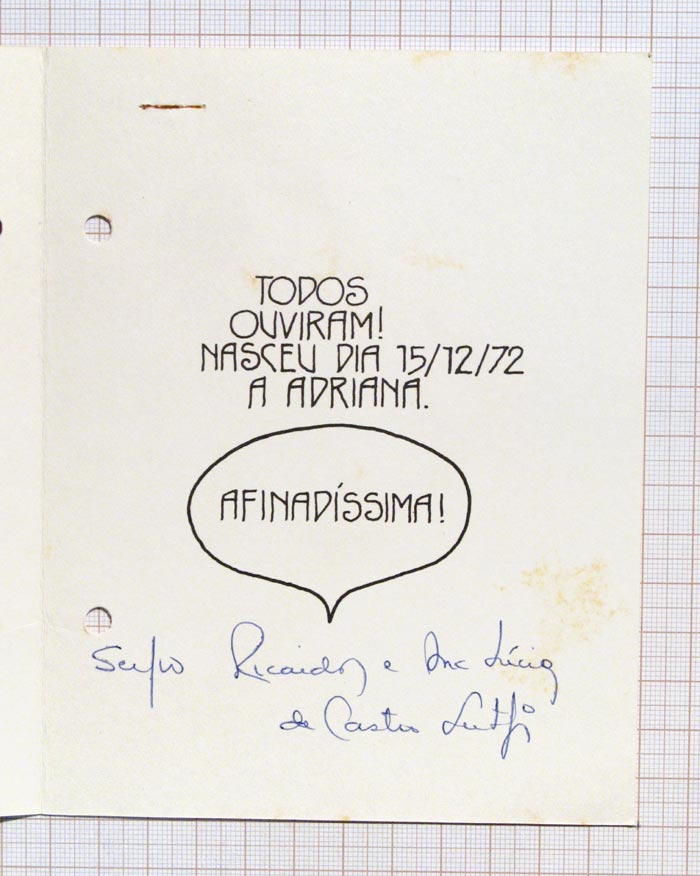 TODOS
OUVIRAM!
NASCEU DIA 15/12/72
A ADRIANA.
AFINADÍSSIMA!
Sergio Ricardo e Ana Lúcia
de Castro Lutfi